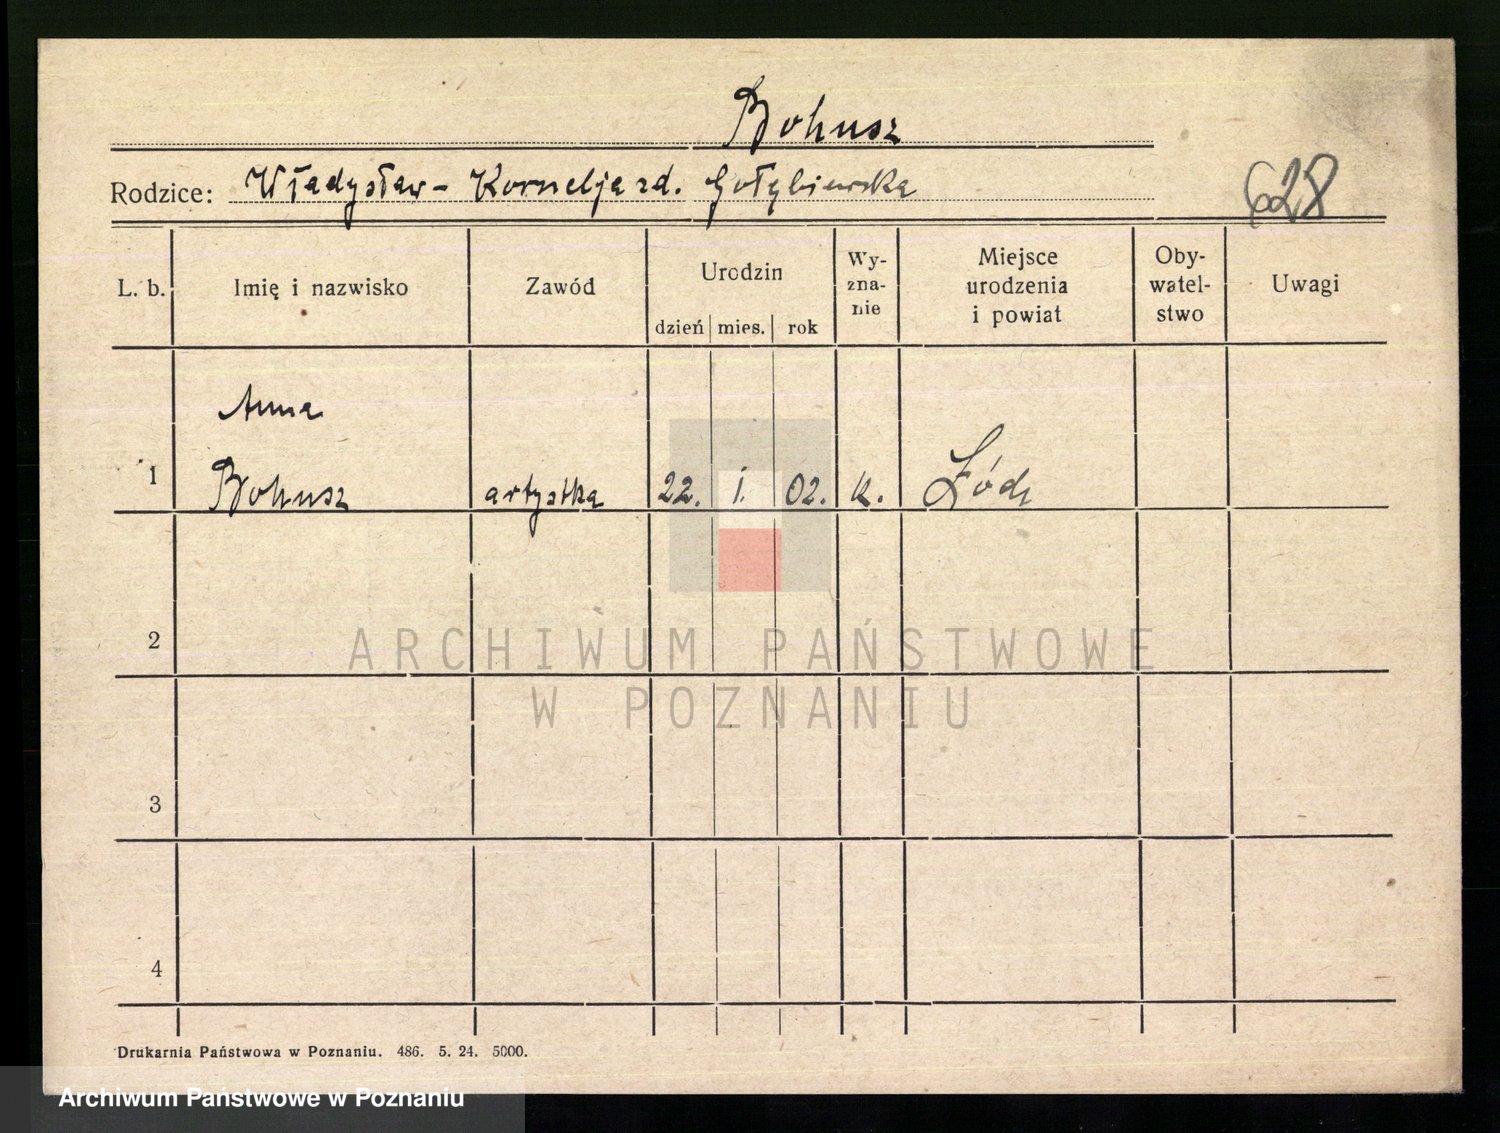 Bohusz
Rodzice: Władysław - Kornelja zd. Gołębiewska
628
L. b. Imię i nazwisko Zawód Urodzin Wy-zna-nie Miejsce urodzenia i powiat Oby-watel-stwo Uwagi
dzień mies. rok
Anna
1 Bohusz artystka 22. I. 02. k. Łódź
2
3
4
Drukarnia Państwowa w Poznaniu. 486. 5. 24. 5000.
ARCHIWUM PAŃSTWOWE
W POZNANIU
Archiwum Państwowe w Poznaniu